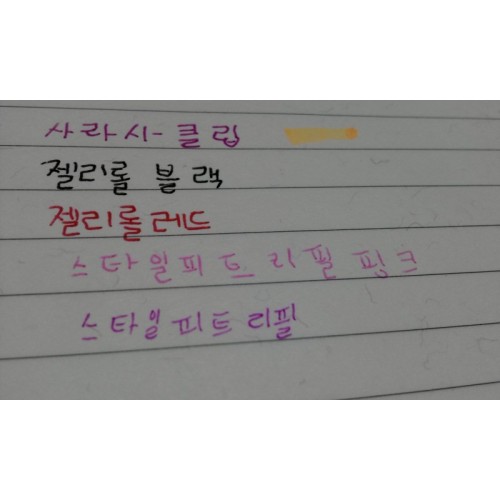 사라시-클립
젤리롤 블랙
젤리롤레드
스타일피트 리필 핑크
스타일피트 리필